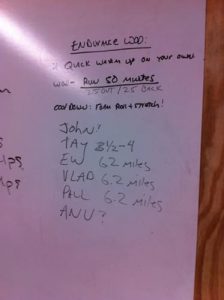 ENDURANCE WOD:
QUICK WARM UP ON YOUR OWN!
WOD- RUN 50 MINUTES
25 OUT / 25 BACK
COOL DOWN: FOAM ROLL + STRETCH!
JOHN?
TAY 3 1/2 - 4
EW 6.2 MILES
VLAD 6.2 MILES
PAUL 6.2 MILES
ANU?